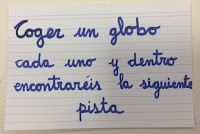 Coger un globo
cada uno y dentro
encontraréis la siguiente
pista